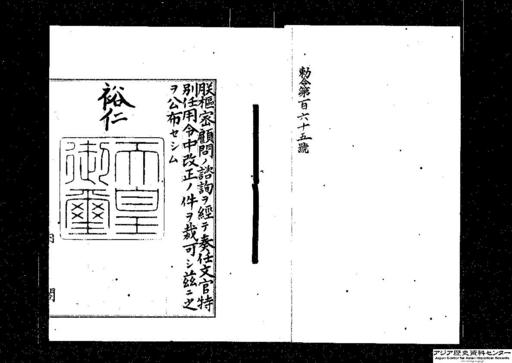 勅令第百六十五號
朕樞密顧問ノ諮詢ヲ經テ奏任文官特
別任用令中改正ノ件ヲ裁可シ茲ニ之
ヲ公布セシム
裕仁
天皇
御璽
内
閣
アジア歴史資料センター
Japan Center for Asian Historical Records